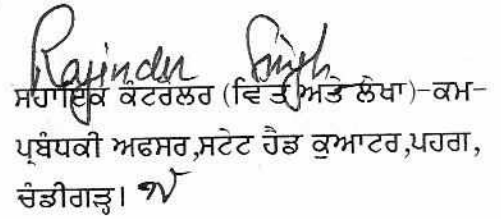 Rajinder Singh
ਸਹਾਇਕ ਕੰਟਰੋਲਰ (ਵਿਤ ਅਤੇ ਲੇਖਾ)-ਕਮ-
ਪ੍ਰਬੰਧਕੀ ਅਫਸਰ,ਸਟੇਟ ਹੈਡ ਕੁਆਟਰ,ਪਹਗ,
ਚੰਡੀਗੜ੍ਹ।